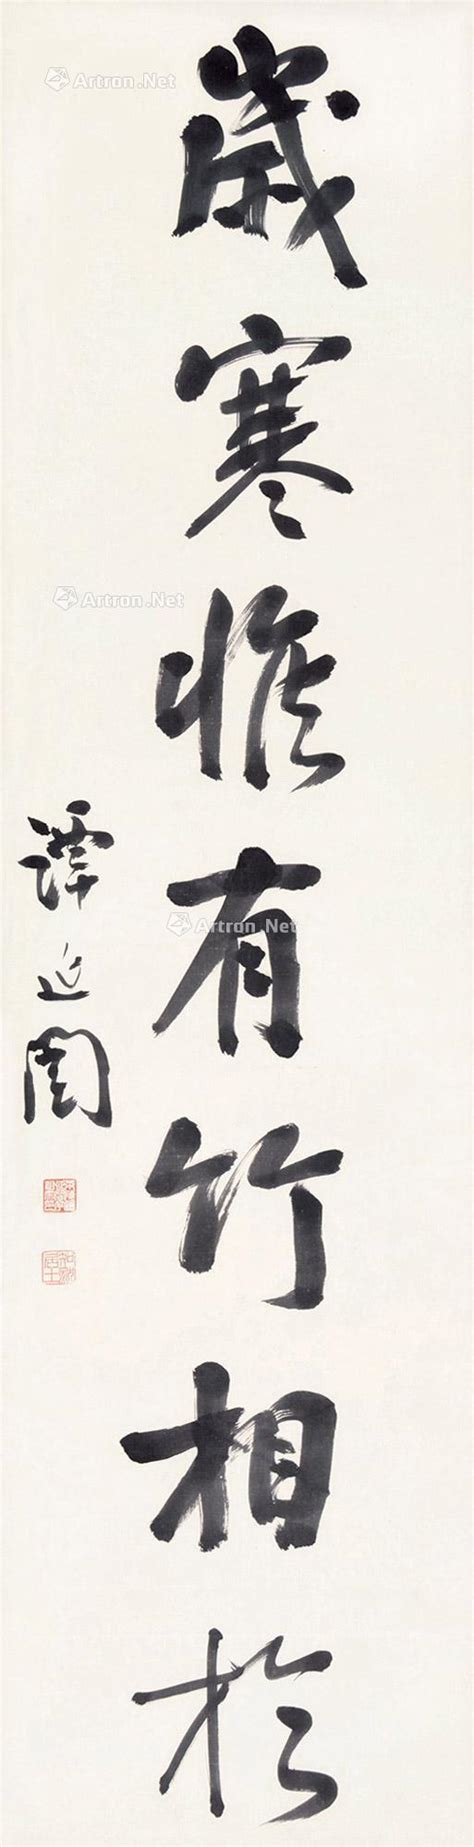 Artron.Net
Artron.Net
Artron.Net
歲寒惟有竹相於
譚延闓